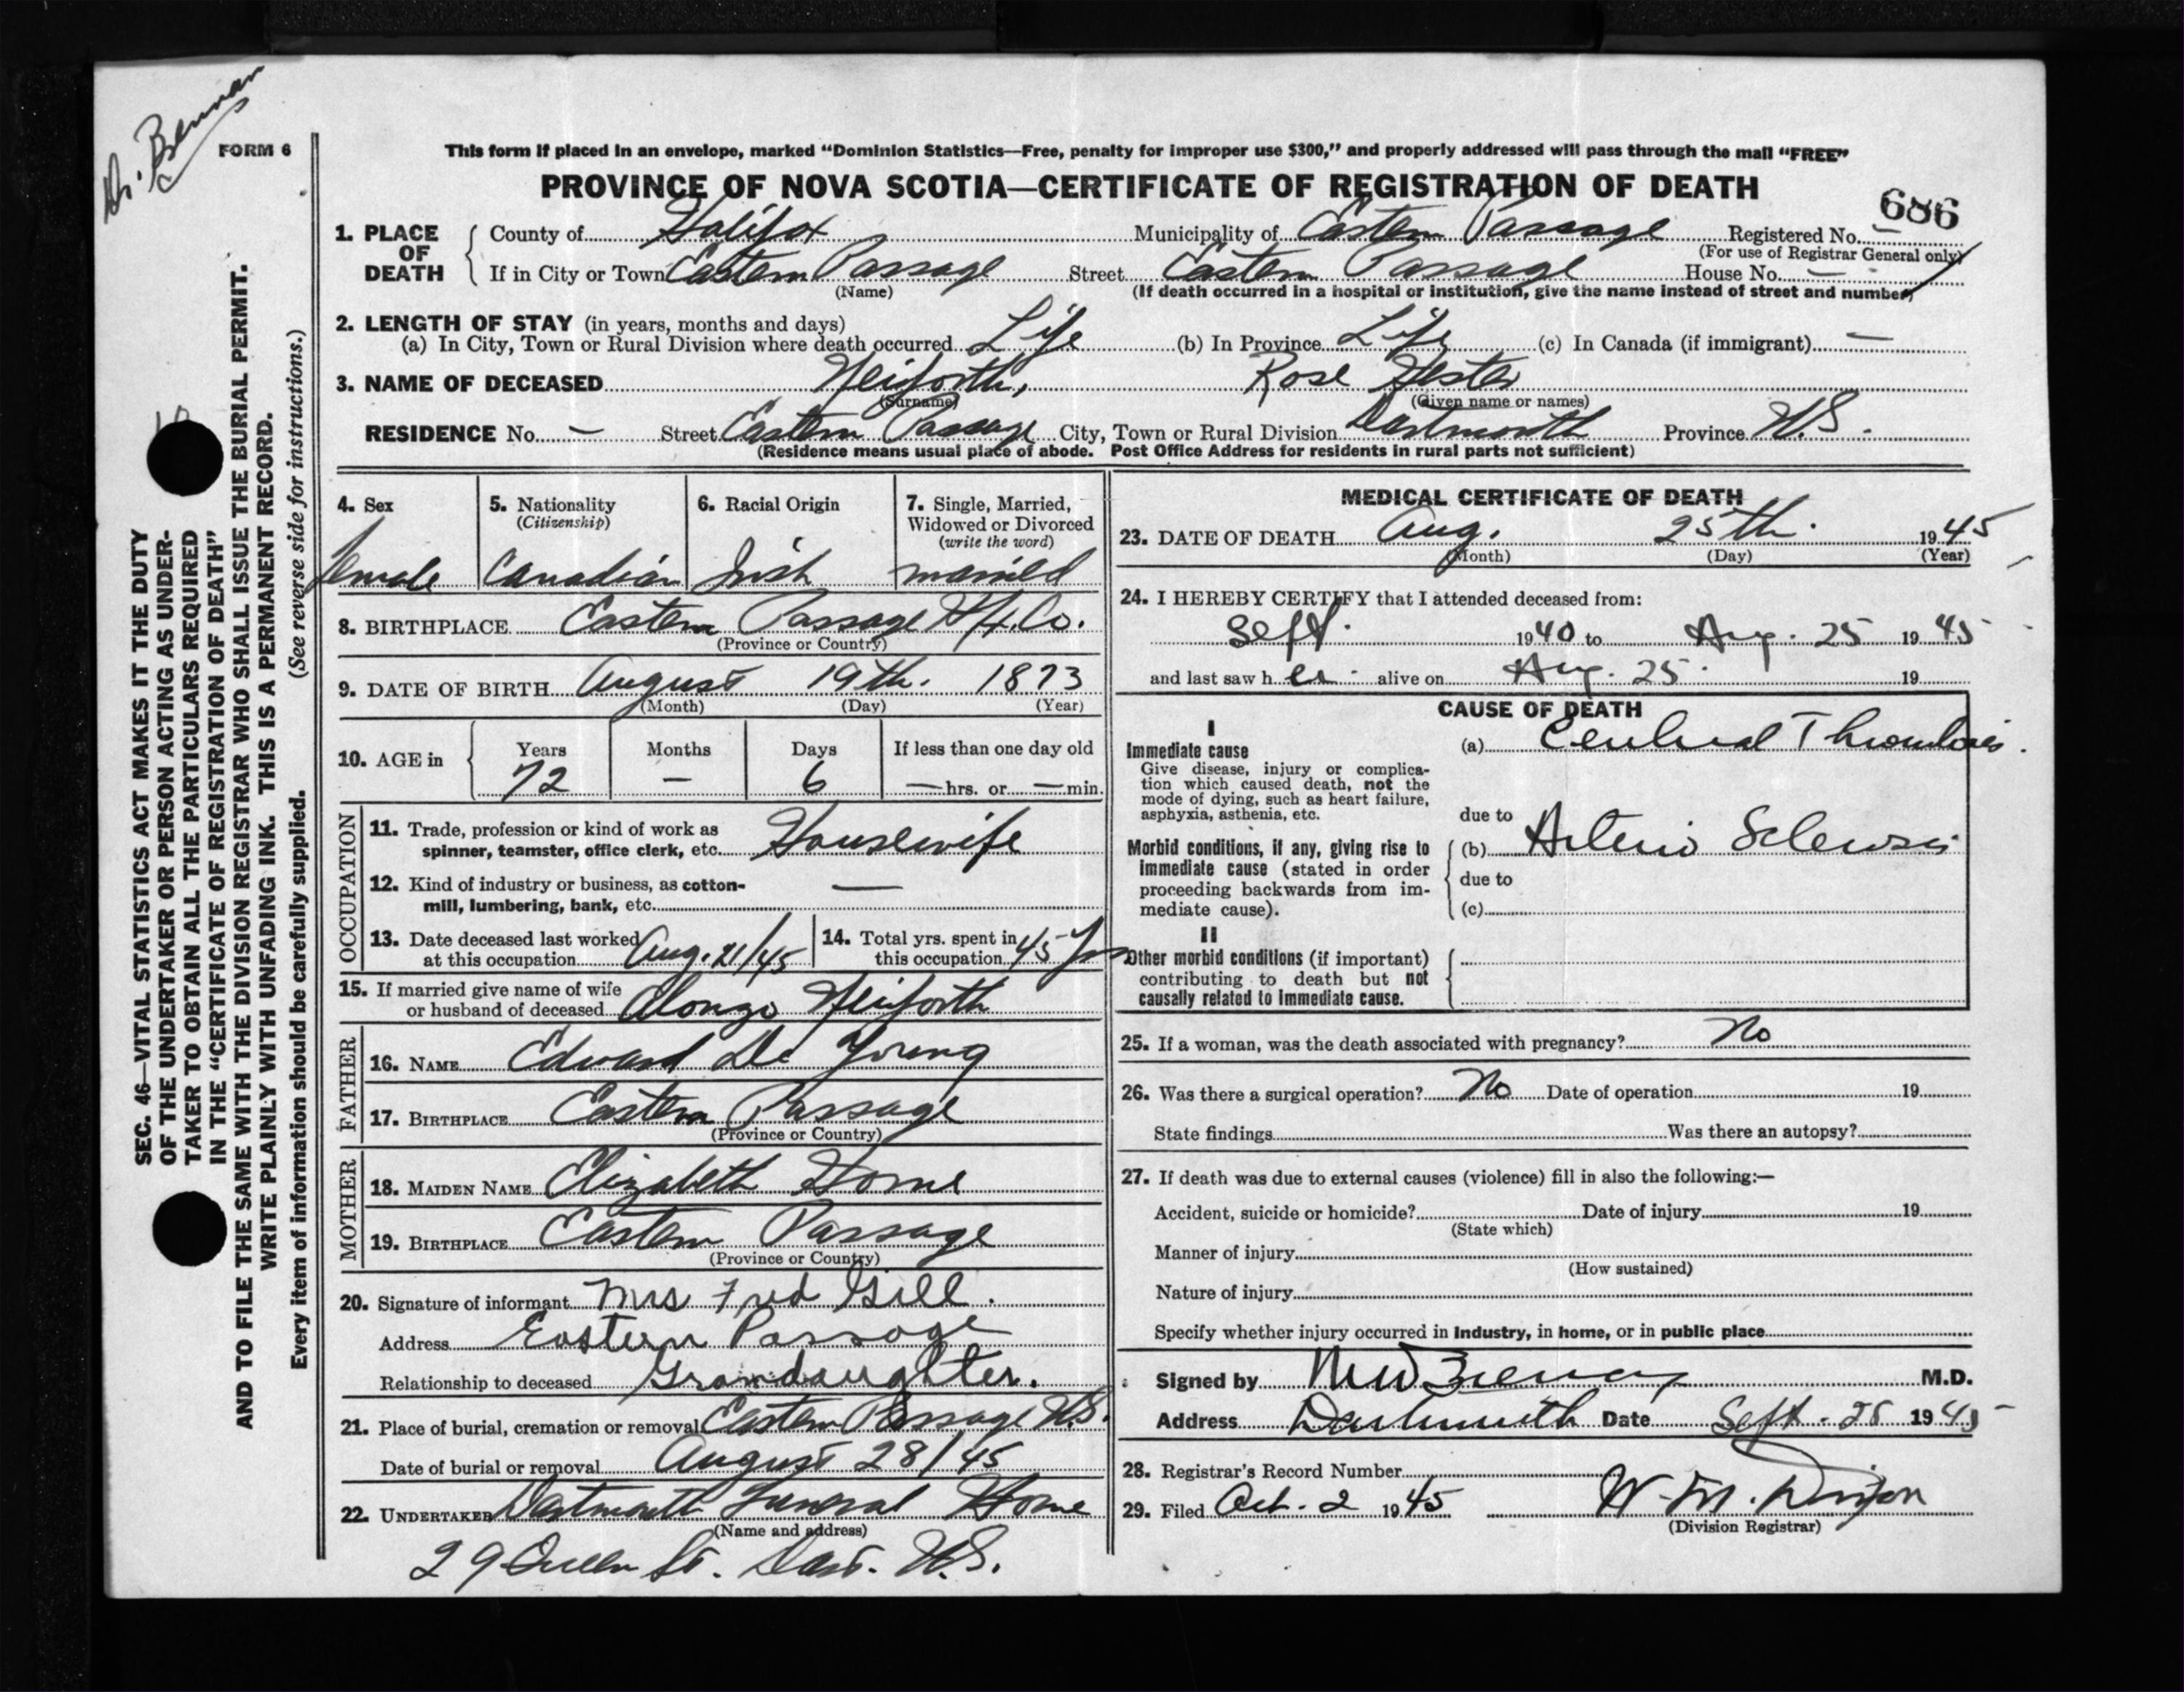 Dr. Brennan
FORM 6
This form if placed in an envelope, marked “Dominion Statistics—Free, penalty for improper use $300,” and properly addressed will pass through the mail “FREE”
PROVINCE OF NOVA SCOTIA—CERTIFICATE OF REGISTRATION OF DEATH
686
1. PLACE OF DEATH
County of Halifax Municipality of Eastern Passage Registered No. —
(For use of Registrar General only)
If in City or Town Eastern Passage Street Eastern Passage House No. —
(Name) (If death occurred in a hospital or institution, give the name instead of street and number)
2. LENGTH OF STAY (in years, months and days)
(a) In City, Town or Rural Division where death occurred Life (b) In Province Life (c) In Canada (if immigrant) —
3. NAME OF DECEASED Neiforth, Rose Hester
(Surname) (Given name or names)
RESIDENCE No. — Street Eastern Passage City, Town or Rural Division Dartmouth Province N.S.
(Residence means usual place of abode. Post Office Address for residents in rural parts not sufficient)
4. Sex 5. Nationality 6. Racial Origin 7. Single, Married,
(Citizenship) Widowed or Divorced
(write the word)
Female Canadian Irish married
8. BIRTHPLACE Eastern Passage Hfx. Co.
(Province or Country)
9. DATE OF BIRTH August 19th. 1873
(Month) (Day) (Year)
10. AGE in Years Months Days If less than one day old
72 — 6 — hrs. or — min.
OCCUPATION
11. Trade, profession or kind of work as
spinner, teamster, office clerk, etc. Housewife
12. Kind of industry or business, as cotton-
mill, lumbering, bank, etc. —
13. Date deceased last worked
at this occupation Aug. 21/45
14. Total yrs. spent in
this occupation 45 Yrs
15. If married give name of wife
or husband of deceased Alonzo Neiforth
FATHER
16. NAME Edward De Young
17. BIRTHPLACE Eastern Passage
(Province or Country)
MOTHER
18. MAIDEN NAME Elizabeth Horne
19. BIRTHPLACE Eastern Passage
(Province or Country)
20. Signature of informant Mrs Fred Gill.
Address Eastern Passage
Relationship to deceased Grandaughter.
21. Place of burial, cremation or removal Eastern Passage N.S.
Date of burial or removal August 28/45
22. UNDERTAKER Dartmouth Funeral Home
(Name and address)
29 Queen St. Dart. N.S.
MEDICAL CERTIFICATE OF DEATH
23. DATE OF DEATH Aug. 25th. 1945
(Month) (Day) (Year)
24. I HEREBY CERTIFY that I attended deceased from:
Sept. 1940 to Aug. 25 1945
and last saw her alive on Aug. 25. 19
CAUSE OF DEATH
I
Immediate cause
Give disease, injury or complica-
tion which caused death, not the
mode of dying, such as heart failure,
asphyxia, asthenia, etc.
(a) Cerebral Thrombosis.
due to
Morbid conditions, if any, giving rise to
immediate cause (stated in order
proceeding backwards from im-
mediate cause).
(b) Arterio Sclerosis
due to
(c)
II
Other morbid conditions (if important)
contributing to death but not
causally related to immediate cause.
25. If a woman, was the death associated with pregnancy? No
26. Was there a surgical operation? No Date of operation 19
State findings Was there an autopsy?
27. If death was due to external causes (violence) fill in also the following:—
Accident, suicide or homicide? Date of injury 19
(State which)
Manner of injury
(How sustained)
Nature of injury
Specify whether injury occurred in industry, in home, or in public place
Signed by M W Brennan M.D.
Address Dartmouth Date Sept. 28 1945
28. Registrar's Record Number
29. Filed Oct. 2 1945 W. M.
(Division Registrar)
SEC. 46—VITAL STATISTICS ACT MAKES IT THE DUTY
OF THE UNDERTAKER OR PERSON ACTING AS UNDER-
TAKER TO OBTAIN ALL THE PARTICULARS REQUIRED
IN THE “CERTIFICATE OF REGISTRATION OF DEATH”
AND TO FILE THE SAME WITH THE DIVISION REGISTRAR WHO SHALL ISSUE THE BURIAL PERMIT.
WRITE PLAINLY WITH UNFADING INK. THIS IS A PERMANENT RECORD.
Every item of information should be carefully supplied. (See reverse side for instructions.)